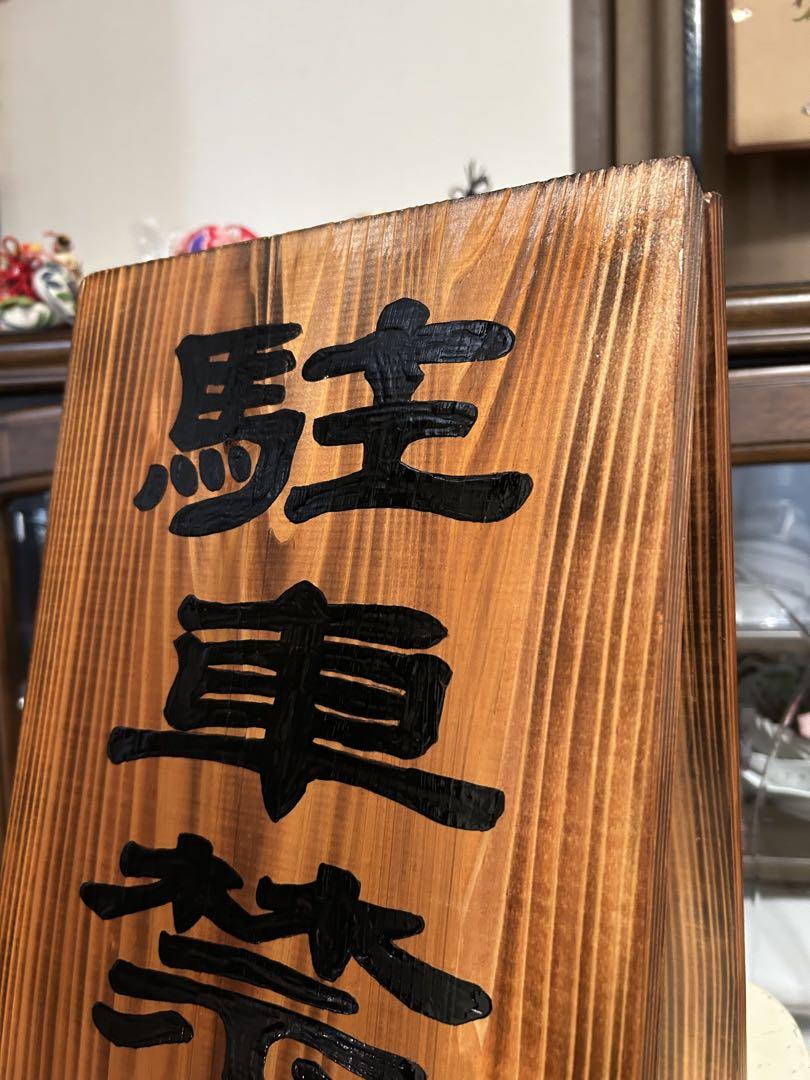 駐車禁